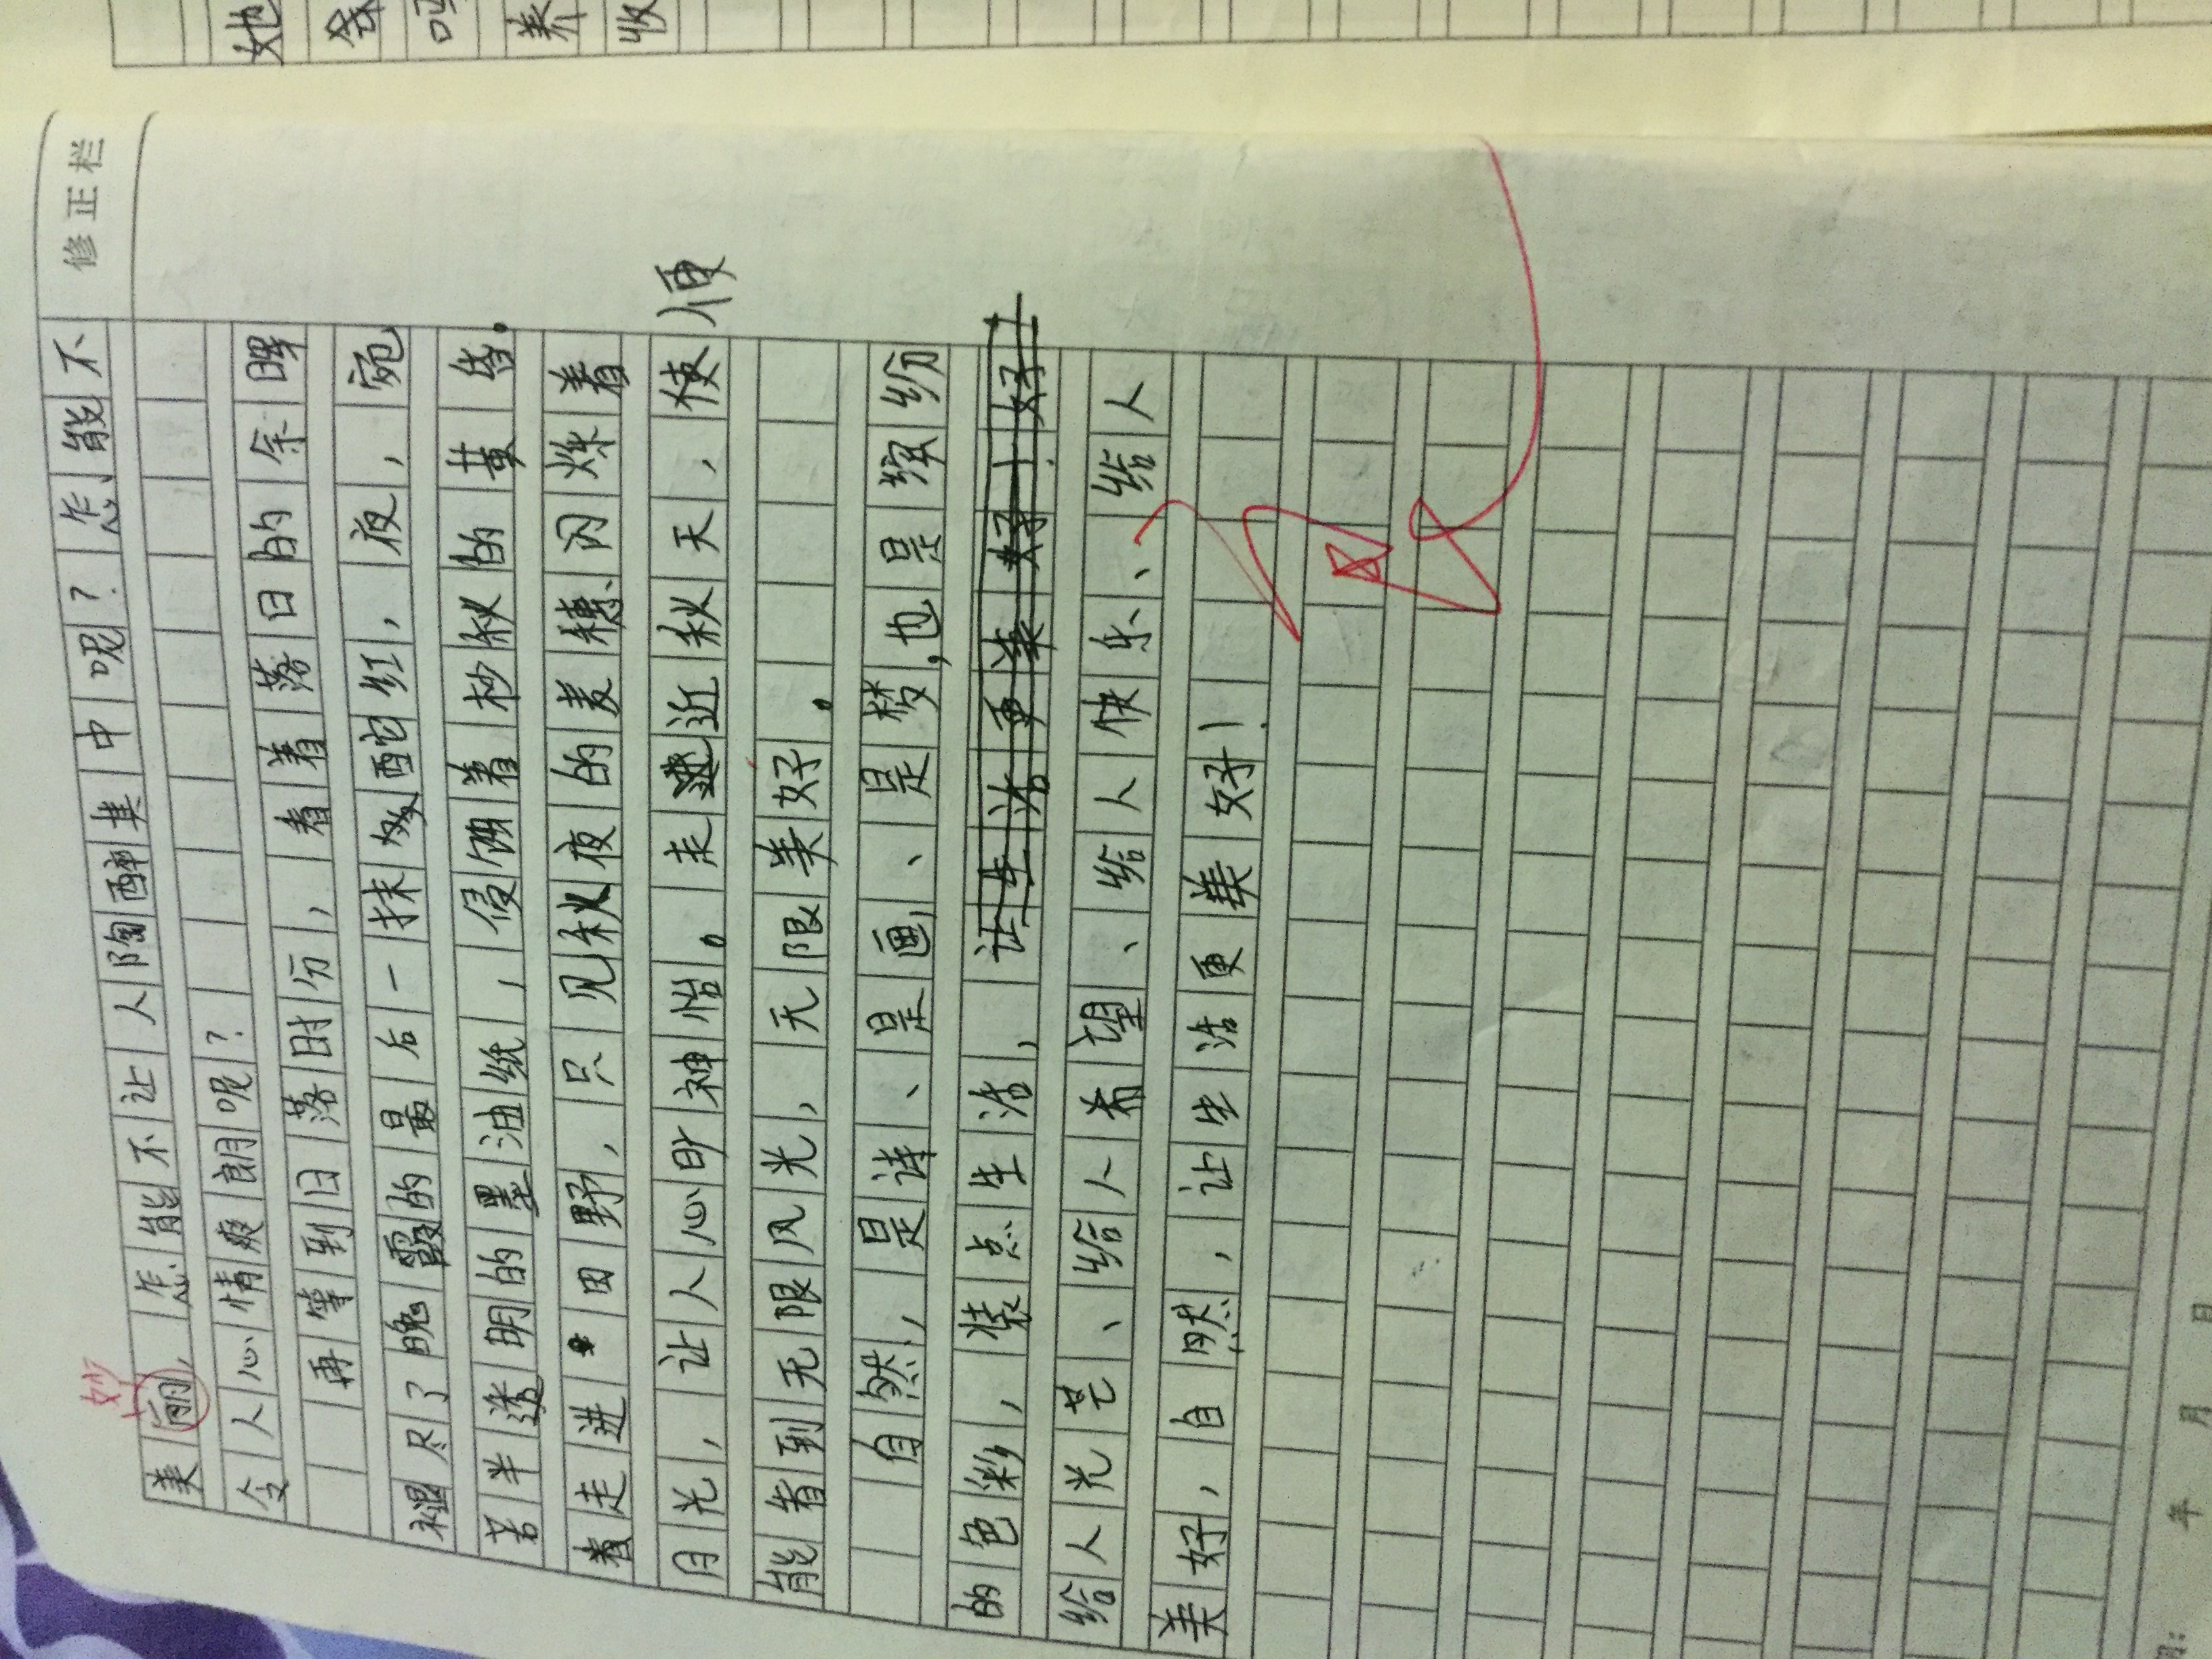 她
吗
美
收
修正栏
妙
美丽,怎能不让人陶醉其中呢?怎能不
令人心情爽朗呢?
再等到日落时分,看着落日的余晖
褪尽了晚霞的最后一抹酡红,夜,宛
若半透明的墨油纸,侵蚀着杪秋的黄昏。
着走进田野,只见秋夜的麦穗闪烁着
月光,让人心旷神怡。走近秋天,使
便
能看到无限风光,无限美好。
自然,是诗、是画、是梦,也是缤纷
的色彩,装点生活,让生活更美好!好
给人光芒、给人希望、给人快乐、给人
美好,自然,让生活更美好!
阅
年 月 日
期: